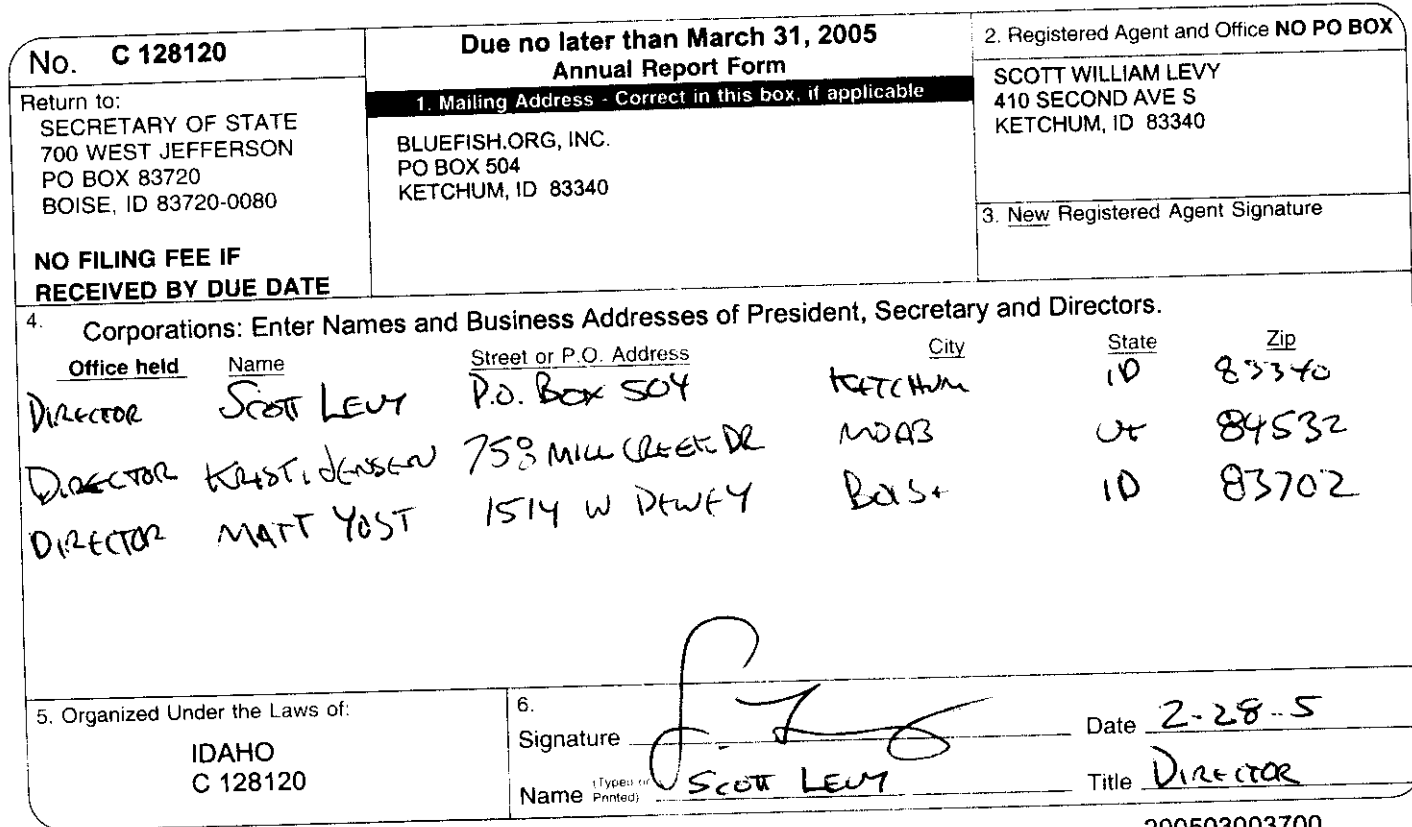 No. C 128120
Return to:
SECRETARY OF STATE
700 WEST JEFFERSON
PO BOX 83720
BOISE, ID 83720-0080
NO FILING FEE IF
RECEIVED BY DUE DATE
Due no later than March 31, 2005
Annual Report Form
1. Mailing Address - Correct in this box, if applicable
BLUEFISH.ORG, INC.
PO BOX 504
KETCHUM, ID 83340
2. Registered Agent and Office NO PO BOX
SCOTT WILLIAM LEVY
410 SECOND AVE S
KETCHUM, ID 83340
3. New Registered Agent Signature
4. Corporations: Enter Names and Business Addresses of President, Secretary and Directors.
Office held Name Street or P.O. Address City State Zip
DIRECTOR SCOTT LEVY P.O. BOX 504 KETCHUM ID 83340
DIRECTOR KRISTI JENSEN 758 MILL CREEK DR MOAB UT 84532
DIRECTOR MATT YOST 1514 W DEWEY BOISE ID 83702
5. Organized Under the Laws of:
IDAHO
C 128120
6.
Signature Date 2-28-5
Name (Typed or Printed) SCOTT LEVY Title DIRECTOR
200503003700